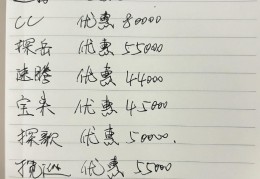 CC 优惠 80000
探岳 优惠 55000
速腾 优惠 44000
宝来 优惠 45000
探歌 优惠 50000.
揽巡 优惠 55000